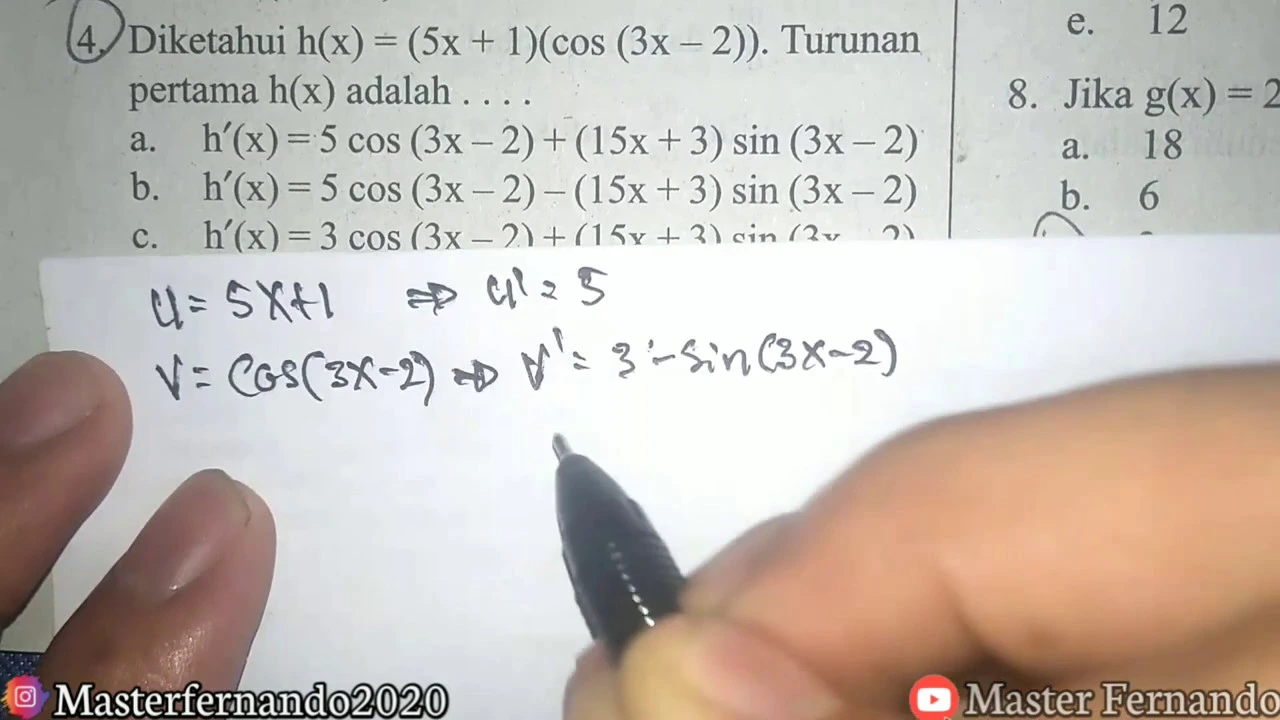 4. Diketahui h(x) = (5x + 1)(cos (3x – 2)). Turunan
pertama h(x) adalah . . . .
a. h′(x) = 5 cos (3x – 2) + (15x + 3) sin (3x – 2)
b. h′(x) = 5 cos (3x – 2) – (15x + 3) sin (3x – 2)
c. h′(x) = 3 cos (3x – 2) + (15x + 3) sin (3x – 2)
e. 12
8. Jika g(x) = 2
a. 18
b. 6
u = 5x+1 ⇒ u' = 5
v = cos(3x-2) ⇒ v' = 3·-sin(3x-2)
Masterfernando2020
Master Fernando